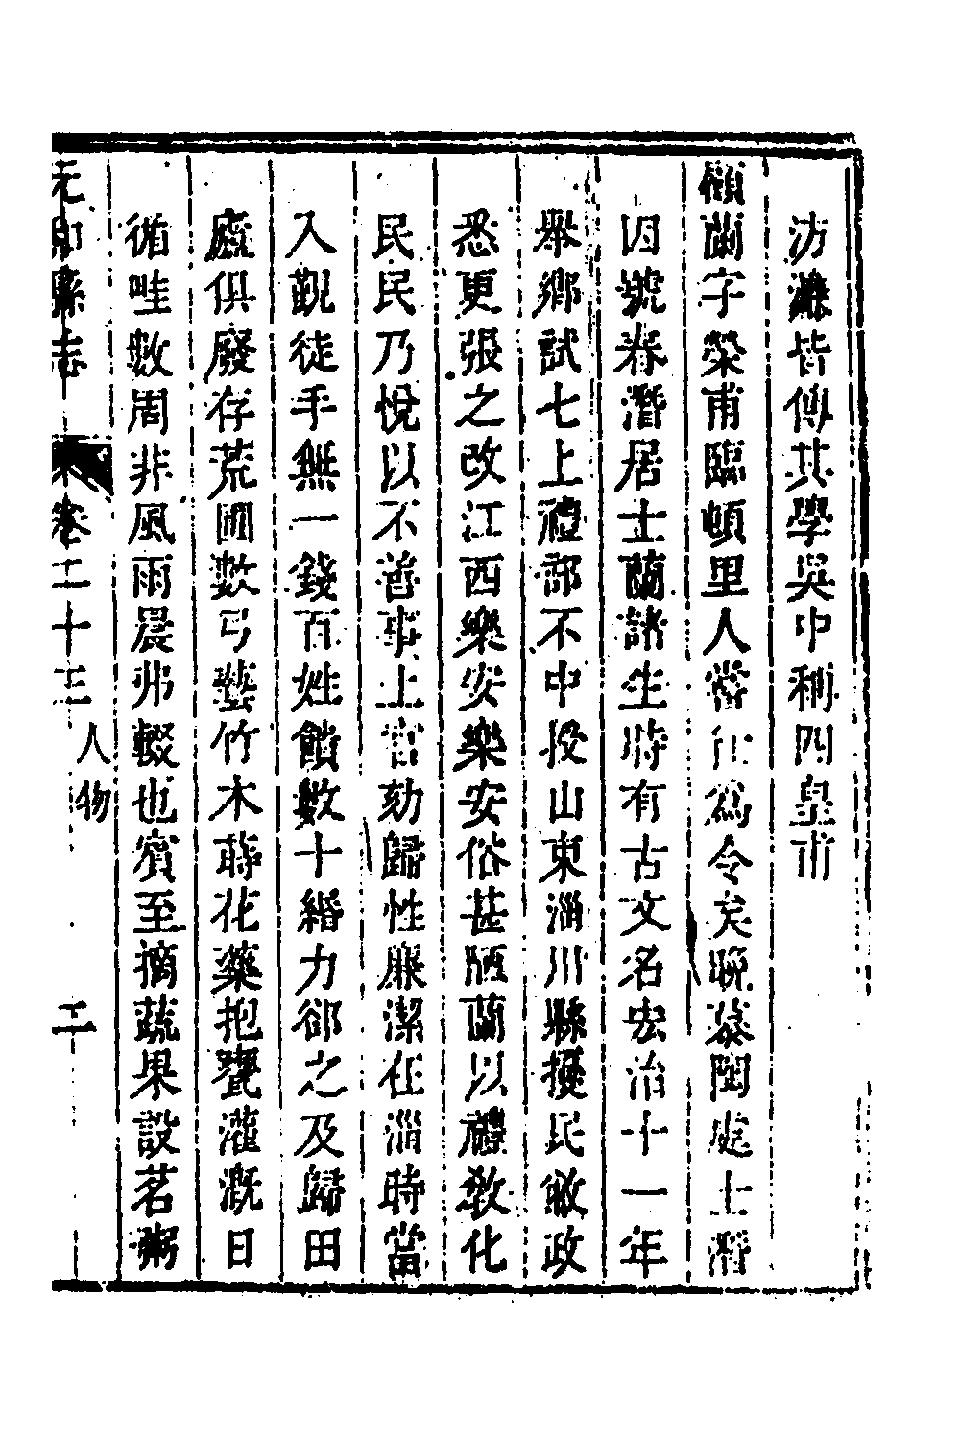 汸濂皆傳其學吳中稱四皇甫
顧蘭字榮甫臨頓里人嘗仕爲令矣聯慕閩處士潛
因號春潛居士蘭諸生時有古文名宏治十一年
舉鄉試七上禮部不中授山東淄川縣擾民敝政
悉更張之改江西樂安樂安俗甚陋蘭以禮教化
民民乃悅以不善事上官劾歸性廉潔在淄時當
入覲徒手無一錢百姓饋數十緡力卻之及歸田
廬俱廢存荒圃數弓藝竹木蒔花藥抱甕灌溉日
循畦數周非風雨晨弗輟也賓至摘蔬果設茗粥
元和縣志 卷二十三 人物 二